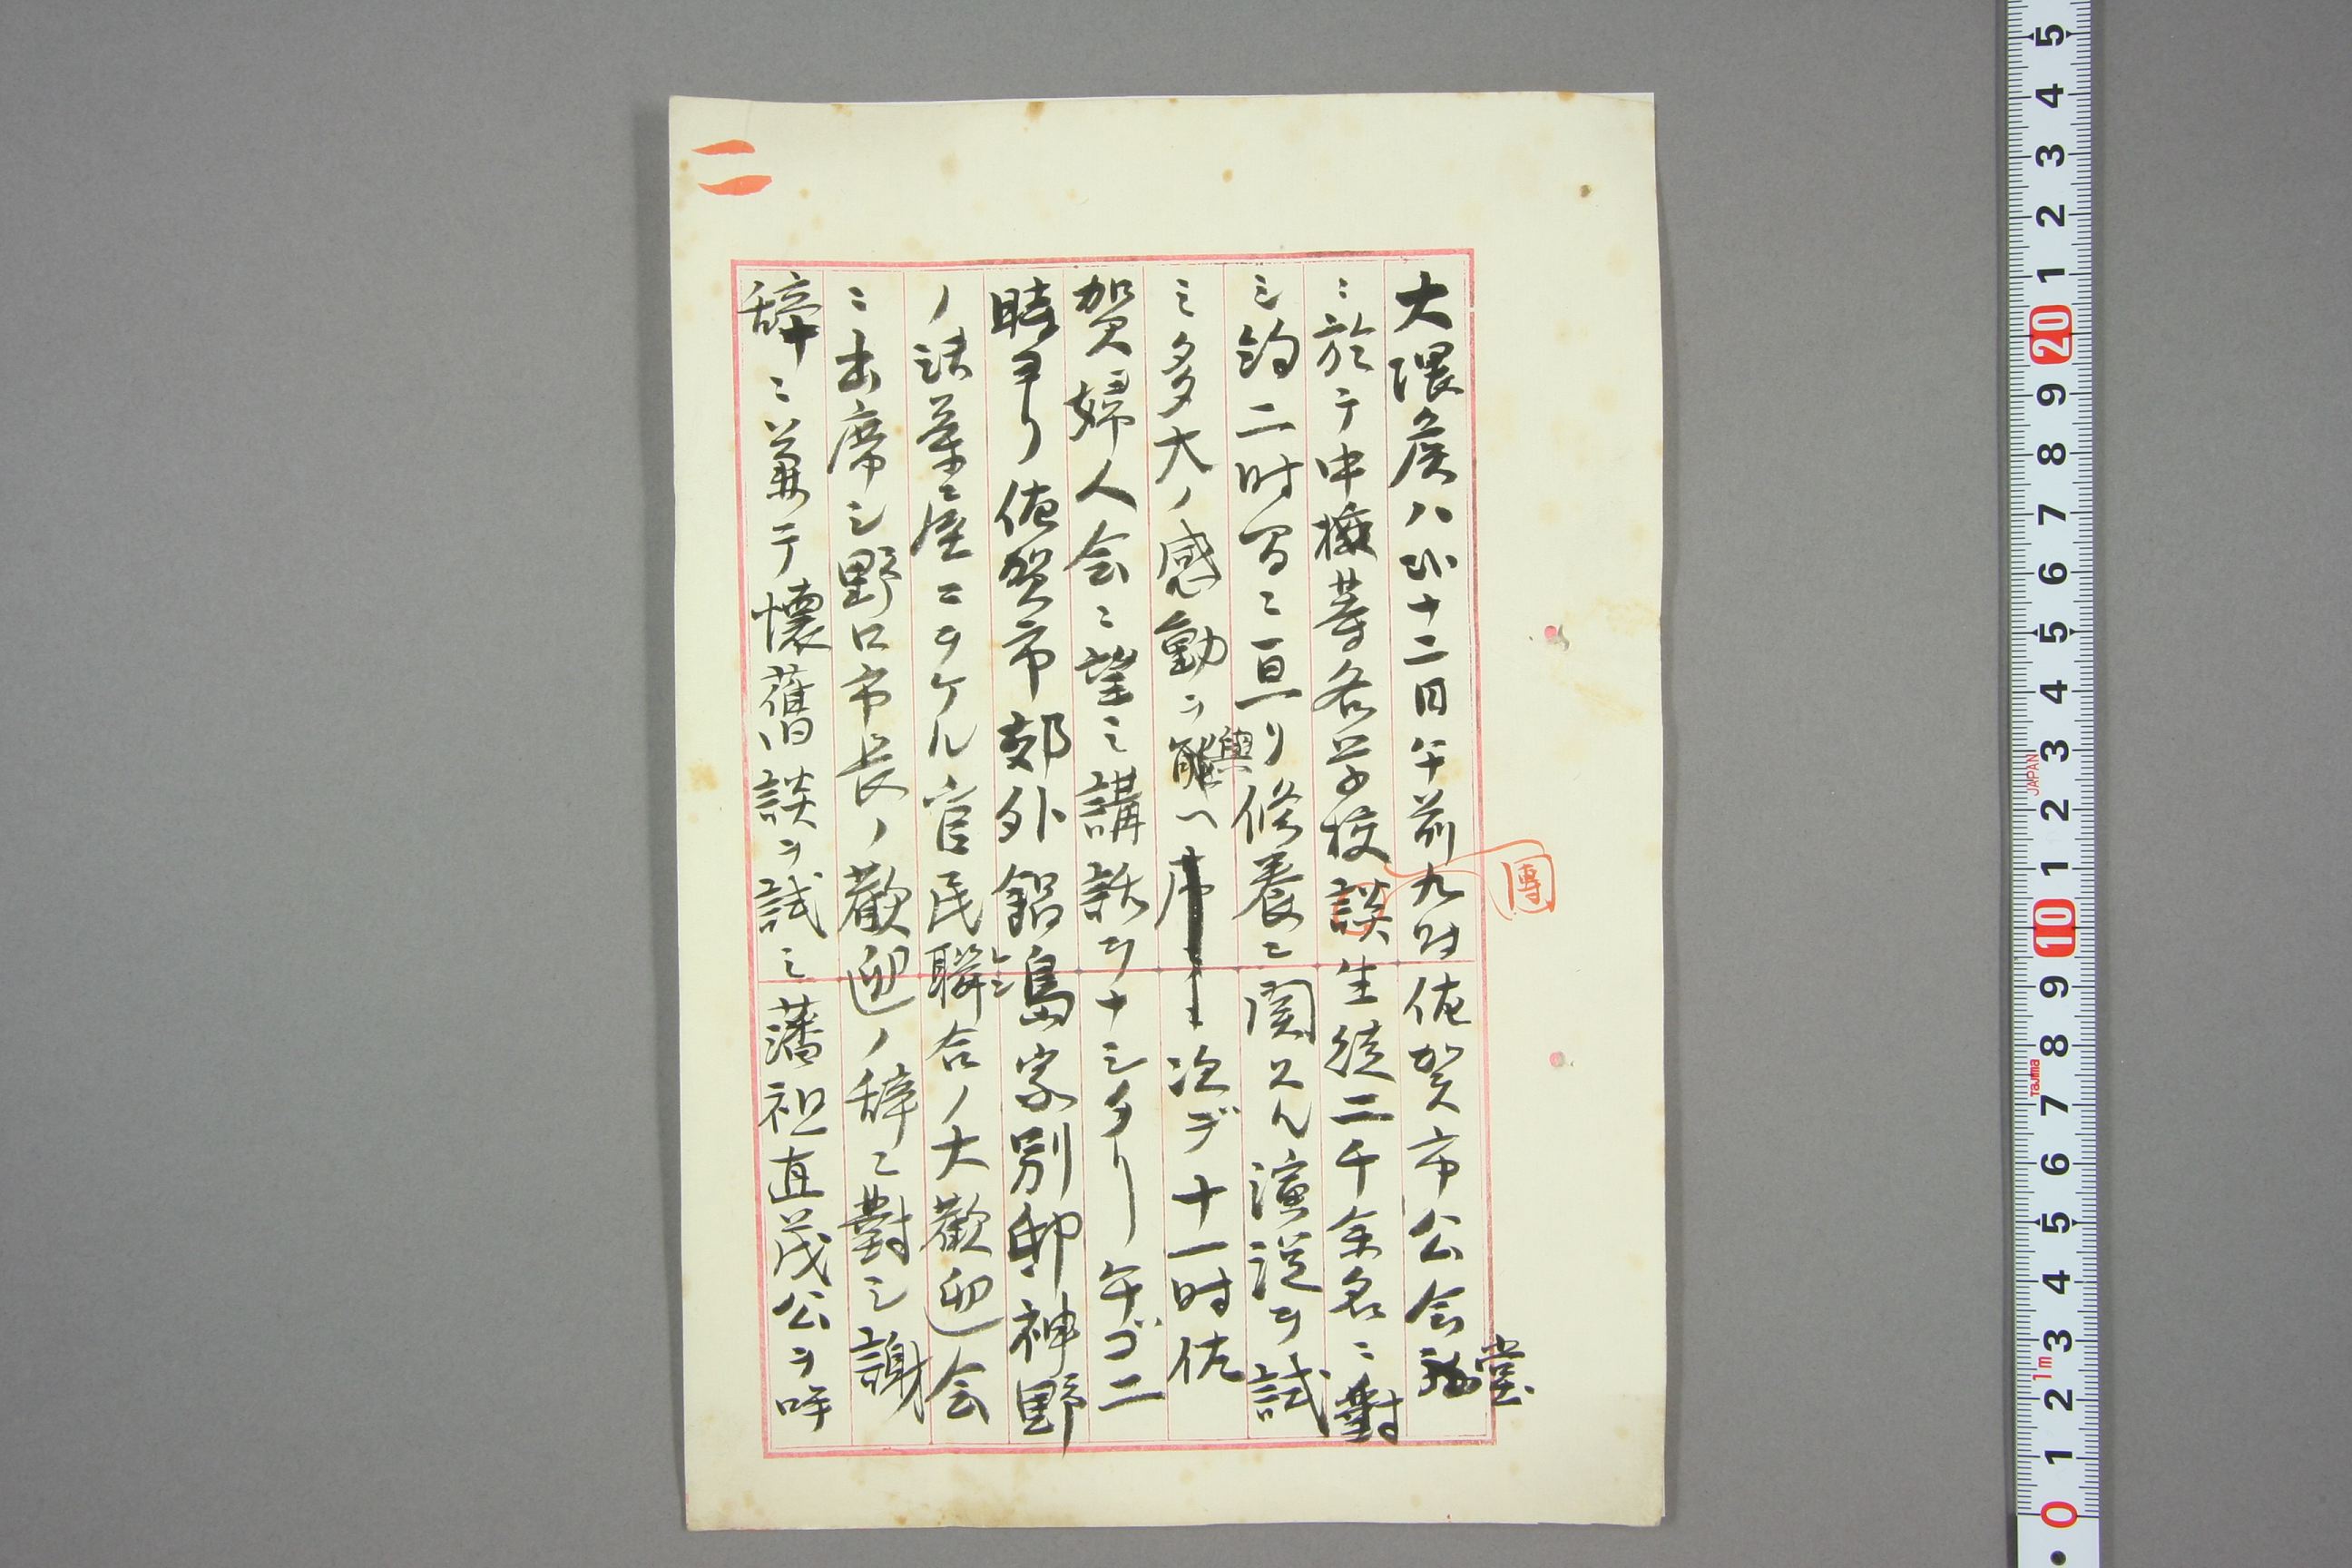 二
大隈侯ハ此十二日午前九時佐賀市公会堂
ニ於テ中擬等各学校談生徒二千余名ニ對
團
シ約二時間ニ亘リ修養ニ関スル演説ヲ試
ミ多大ノ感動ヲ與ヘ次デ十一時佐
賀婦人会ニ望ミ講話ヲナシタリ午ゴ二
時ヨリ佐賀市郊外鍋島家別邸神野
ノ誌葉屋ニヲケル官民聯合ノ大歓迎会
ニ出席シ野口市長ノ歓迎ノ辞ニ對シ謝
辞ニ兼テ懐舊談ヲ試ミ藩祖直茂公ヲ呼